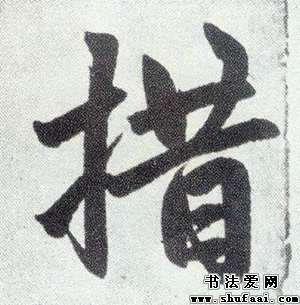 措
书法爱网
www.shufaai.com